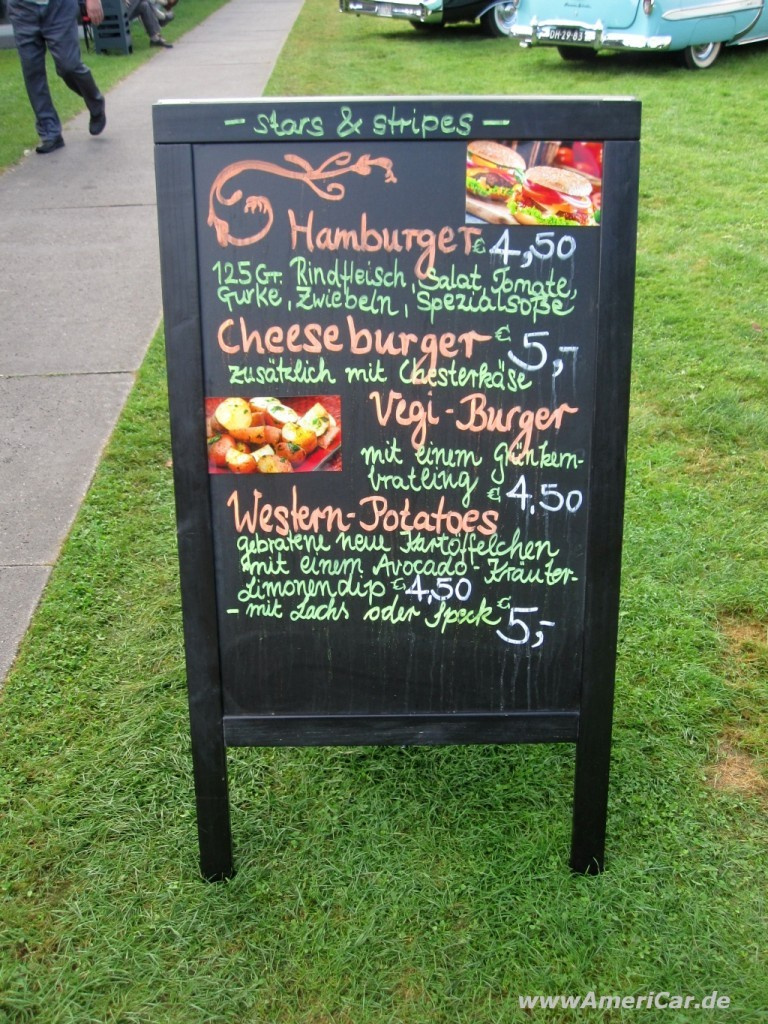 DH-29-83
- stars & stripes -
Hamburger € 4,50
125 Gr. Rindfleisch, Salat, Tomate,
Gurke, Zwiebeln, Spezialsoße
Cheeseburger € 5,-
zusätzlich mit Chesterkäse
Vegi-Burger
mit einem Grünkern-
bratling € 4,50
Western-Potatoes
gebratene neue Kartöffelchen
mit einem Avocado-Kräuter-
Limonendip € 4,50
- mit Lachs oder Speck € 5,-
www.AmeriCar.de